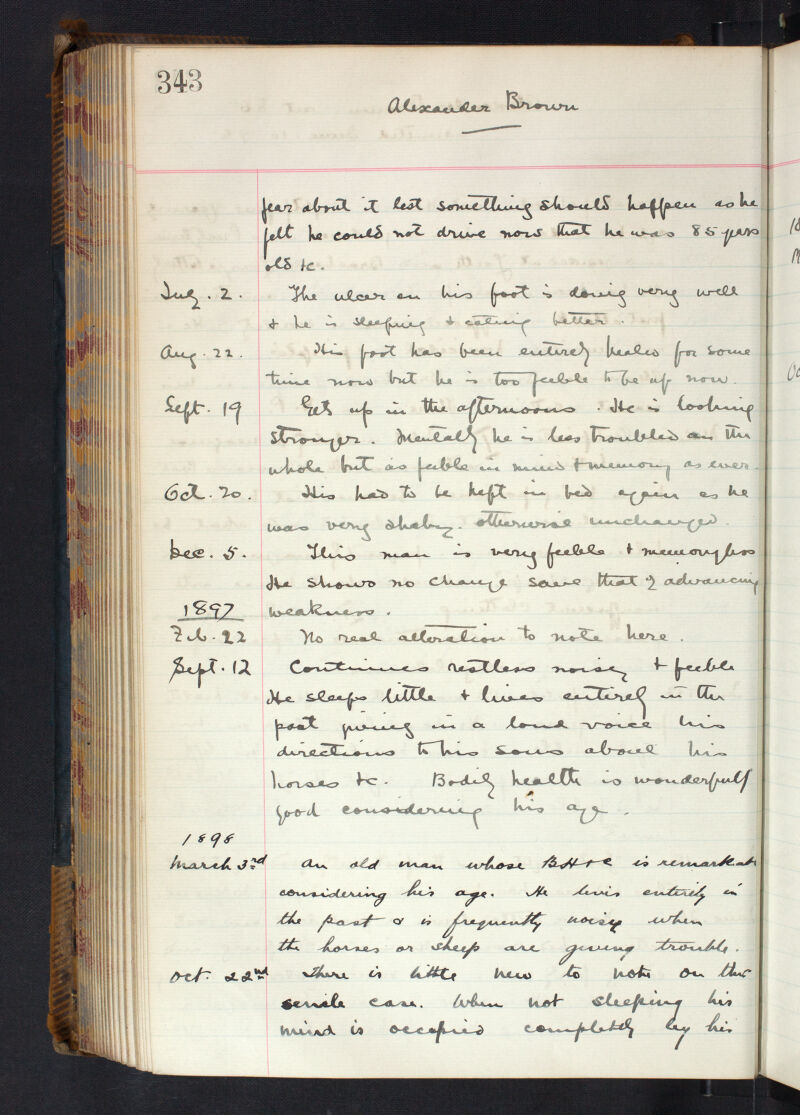 343
Alexander Brown
fear about it lest something should happen as he
felt he could not drive now that he was 85 years
old &c.
July. 2. The ulcer on his foot is doing very well
& he is sleeping & eating better.
Aug. 22. His foot has been entirely healed for some
time now but he is too feeble to be up now.
Sept. 19 Gets up in the afternoons. He is looking
stronger. Mentally he is less troubled on the
whole but as feeble in mind & memory as ever.
Oct. 20. His had to be kept in bed again as he
was very shaky. otherwise unchanged.
Dec. 5. This man is very feeble & memoryless
He shows no change save that of advancing
1897 weakness.
Feb. 22 No real alteration to note here.
Sept. 12 Continues restless noisy & feeble
He sleeps little & lives entirely in the
past giving in a loud voice his
directions to his sons about his
horses &c. Bodily health is wonderfully
good considering his age.
1898
March 3rd An old man whose BH+C is remarkable
considering his age. He lives entirely in
the past & is frequently noisy when
the horses or sheep are giving trouble.
Oct. 22nd There is little new to note on this
senile case. When not sleeping his
mind is occupied completely by his